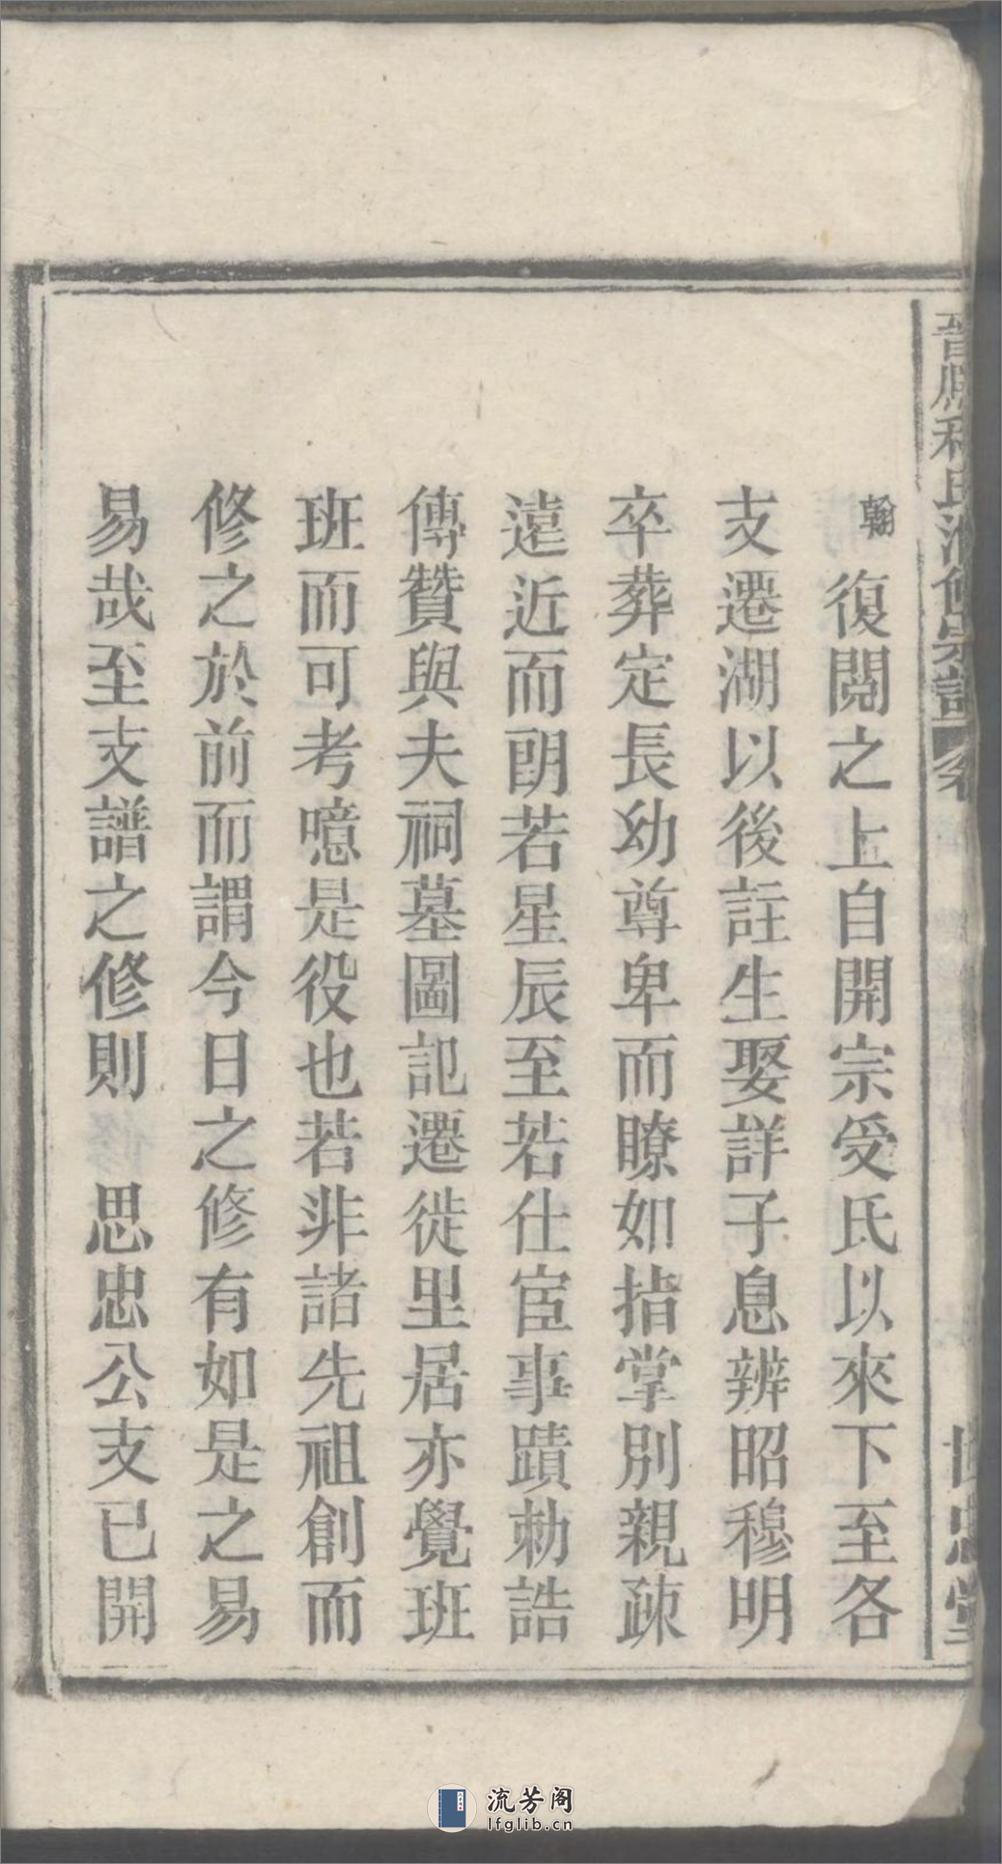 翰復閱之上自開宗受氏以來下至各
支遷湖以後註生娶詳子息辨昭穆明
卒葬定長幼尊卑而瞭如指掌別親疎
遠近而朗若星辰至若仕宦事蹟勅誥
傳贊與夫祠墓圖記遷徙里居亦覺班
班而可考噫是役也若非諸先祖創而
修之於前而謂今日之修有如是之易
易哉至支譜之修則　思忠公支已開
流芳阁
lfglib.cn